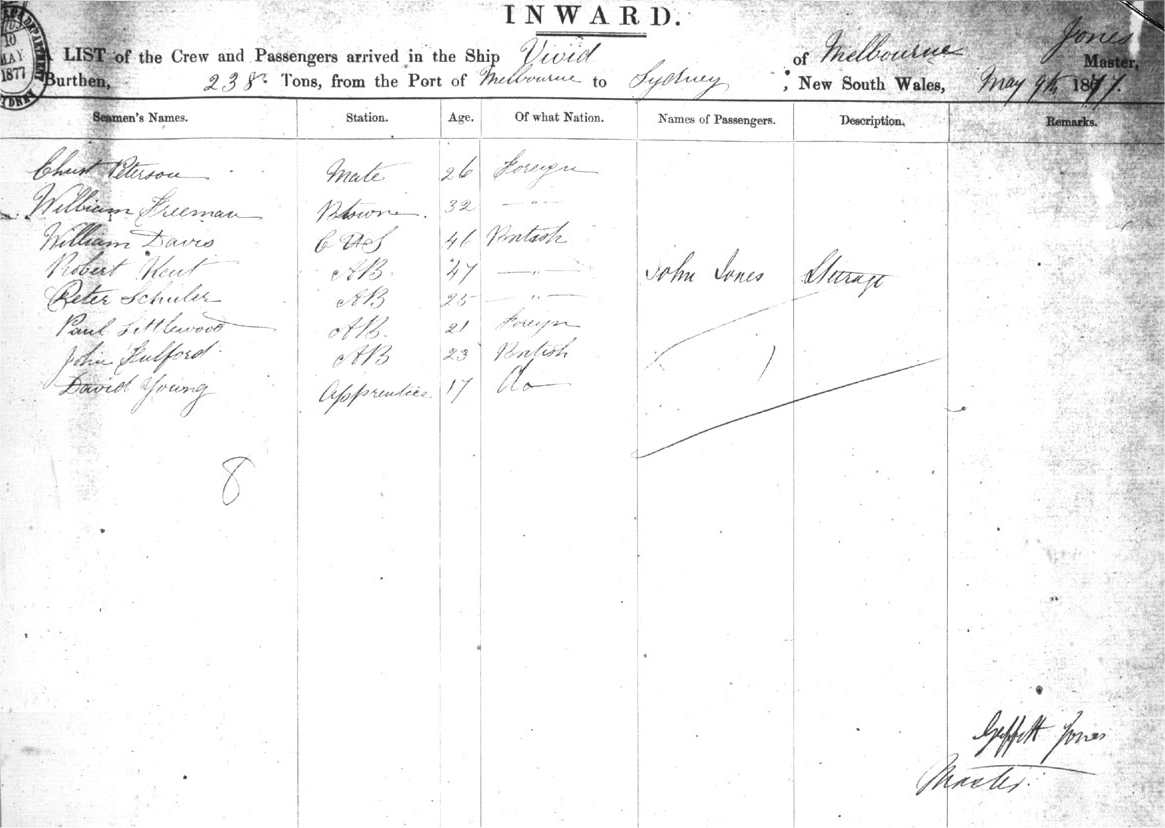 INWARD.
LIST of the Crew and Passengers arrived in the Ship Vivid of Melbourne Jones Master,
Burthen, 238 Tons, from the Port of Melbourne to Sydney ; New South Wales, May 9th 1877.
10 MAY 1877
Seamen's Names. Station. Age. Of what Nation. Names of Passengers. Description. Remarks.
Christ Peterson Mate 26 Foreign
William Freeman 32 — " —
William Davis 46 British
Robert Kent AB 47 — " — John Jones Steerage
Peter Schuler AB 25 — " —
Paul Littlewood AB 21 Foreign
John Fulford AB 23 British
David Young Apprentice 17 Do
8
Jones
Master